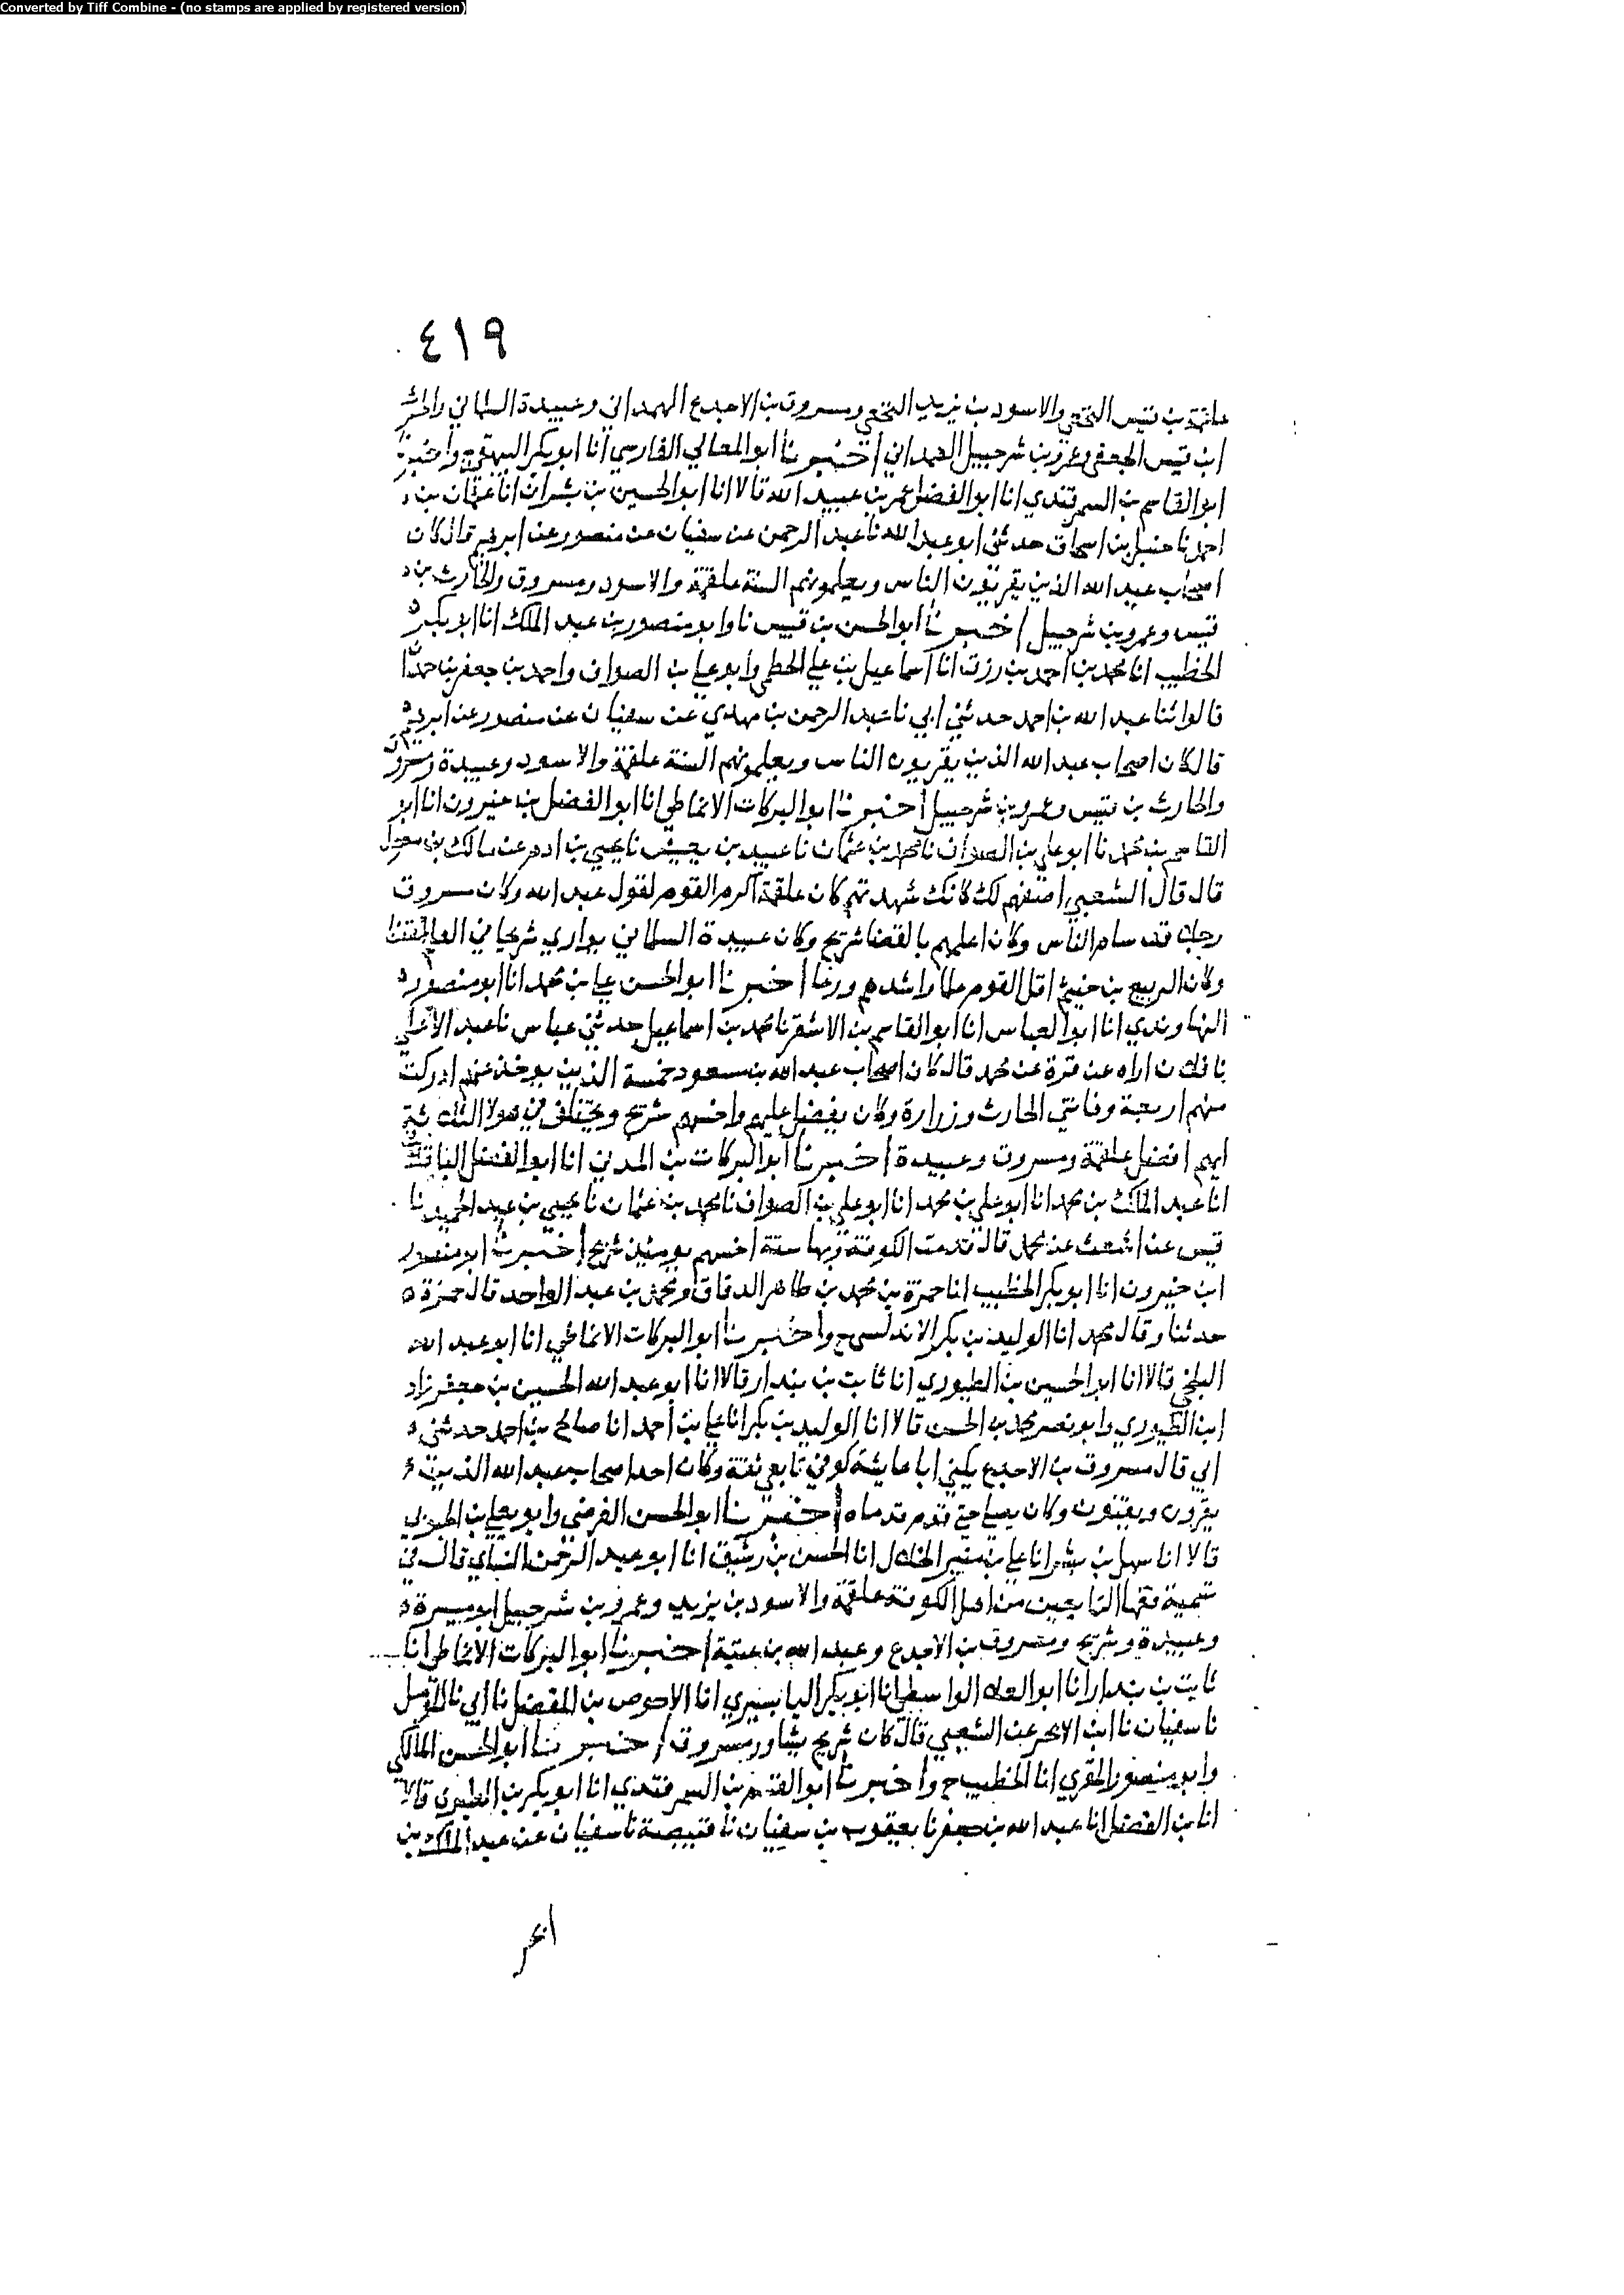 Converted by Tiff Combine - (no stamps are applied by registered version)
٤١٩
علقمة بن قيس النخعي والاسود بن يزيد النخعي ومسروق بن الاجدع الهمداني وعبيدة السلماني والحرث
ابن قيس الجعفي وعمرو بن شرحبيل الهمداني اخبرنا ابو المعالي الفارسي انا ابو بكر البيهقي ح واخبرنا
ابو القاسم بن السمرقندي انا ابو الفضل عمر بن عبيد الله قالا انا ابو الحسين بن بشران انا عثمان بن
احمد نا حنبل بن اسحاق حدثني ابو عبد الله نا عبد الرحمن عن سفيان عن منصور عن ابرهيم قال كان
اصحاب عبد الله الذين يقرئون الناس ويعلمونهم السنة علقمة والاسود ومسروق والحارث بن
قيس وعمرو بن شرحبيل اخبرنا ابو الحسن بن قبيس نا وابو منصور بن عبد الملك انا ابو بكر
الخطيب انا محمد بن احمد بن رزق انا اسماعيل بن علي الخطبي وابو علي بن الصواف واحمد بن جعفر بن حمدان
قالوا ثنا عبد الله بن احمد حدثني ابي نا عبد الرحمن بن مهدي عن سفيان عن منصور عن ابرهيم
قال كان اصحاب عبد الله الذين يقريون الناس ويعلمونهم السنة علقمة والاسود وعبيدة ومسروق
والحارث بن قيس وعمرو بن شرحبيل اخبرنا ابو البركات الانماطي انا ابو الفضل بن خيرون انا ابو
القاسم بن محمد نا ابو علي بن الصواف نا محمد بن عثمان نا عبيد بن يعيش نا يحيى بن ادم عن مالك بن مغول
قال قال الشعبي اصفهم لك كانك شهدتهم كان علقمة اكرم القوم لقول عبد الله وكان مسروق
رجل قد سام الناس وكان اعلمهم بالقضا شريح وكان عبيدة السلماني يوازي شريحا في العلم والقضا
وكان الربيع بن خثيم اقل القوم علما واشدهم ورعا اخبرنا ابو الحسن علي بن محمد انا ابو منصور
النهاوندي انا ابو العباس انا ابو القاسم بن الاشقر نا محمد بن اسماعيل حدثني عباس نا عبد الاعلى
اراه عن قرة عن محمد قال كان اصحاب عبد الله بن مسعود خمسة الذين يوخذ عنهم ادركت
منهم اربعة وفاتني الحارث وزرارة وكان يفضل عليهم واخسهم شريح ويختلف في هولا الثلثة
ايهم افضل علقمة ومسروق وعبيدة اخبرنا ابو البركات بن المدني انا ابو الفضل الباقلاني
انا عبد الملك بن محمد انا ابو علي بن محمد انا ابو علي بن الصواف نا محمد بن عثمان نا يحيى بن عبد الحميد نا
قيس عن اشعث عن محمد قال قدمت الكوفة وبها ستة اخسهم يومئذ شريح اخبرنا ابو منصور
ابن خيرون انا ابو بكر الخطيب انا حمزة بن محمد بن طاهر الدقاق ومحمد بن عبد الواحد قال حمزة
حدثنا وقال محمد انا الوليد بن بكر الاندلسي ح واخبرنا ابو البركات الانماطي انا ابو عبد الله
البلخي قالا انا ابو الحسين بن الطيوري انا ثابت بن بندار قالا انا ابو عبد الله الحسين بن جعفر زاد
ابن الطيوري وابو نصر محمد بن الحسن قالا انا الوليد بن بكر انا علي بن احمد انا صالح بن احمد حدثني
ابي قال مسروق بن الاجدع يكنى ابا عايشة كوفي تابعي ثقة وكان احد اصحاب عبد الله الذين
يقرون ويفتون وكان يصلي حتى تورم قدماه اخبرنا ابو الحسن الفرضي وابو يعلى بن الحبوبي
قالا انا سهل بن بشر انا علي بن منير الخلال انا الحسن بن رشيق انا ابو عبد الرحمن النسائي قال في
تسمية فقها التابعين من اهل الكوفة علقمة والاسود بن يزيد وعمرو بن شرحبيل ابو ميسرة
وعبيدة وشريح ومسروق بن الاجدع وعبد الله بن عتبة اخبرنا ابو البركات الانماطي انا
ثابت بن بندار انا ابو العلا الواسطي انا ابو بكر البابسيري انا الاحوص بن المفضل نا ابي نا المؤمل
نا سفيان نا ابن الابجر عن الشعبي قال كان شريح يشاور مسروق اخبرنا ابو الحسن المالكي
وابو منصور المقري انا الخطيب ح واخبرنا ابو القسم بن السمرقندي انا ابو بكر بن الطبري قالا
انا بن الفضل انا عبد الله بن جعفر نا يعقوب بن سفيان نا قبيصة نا سفيان عن عبد الملك بن
ابجر